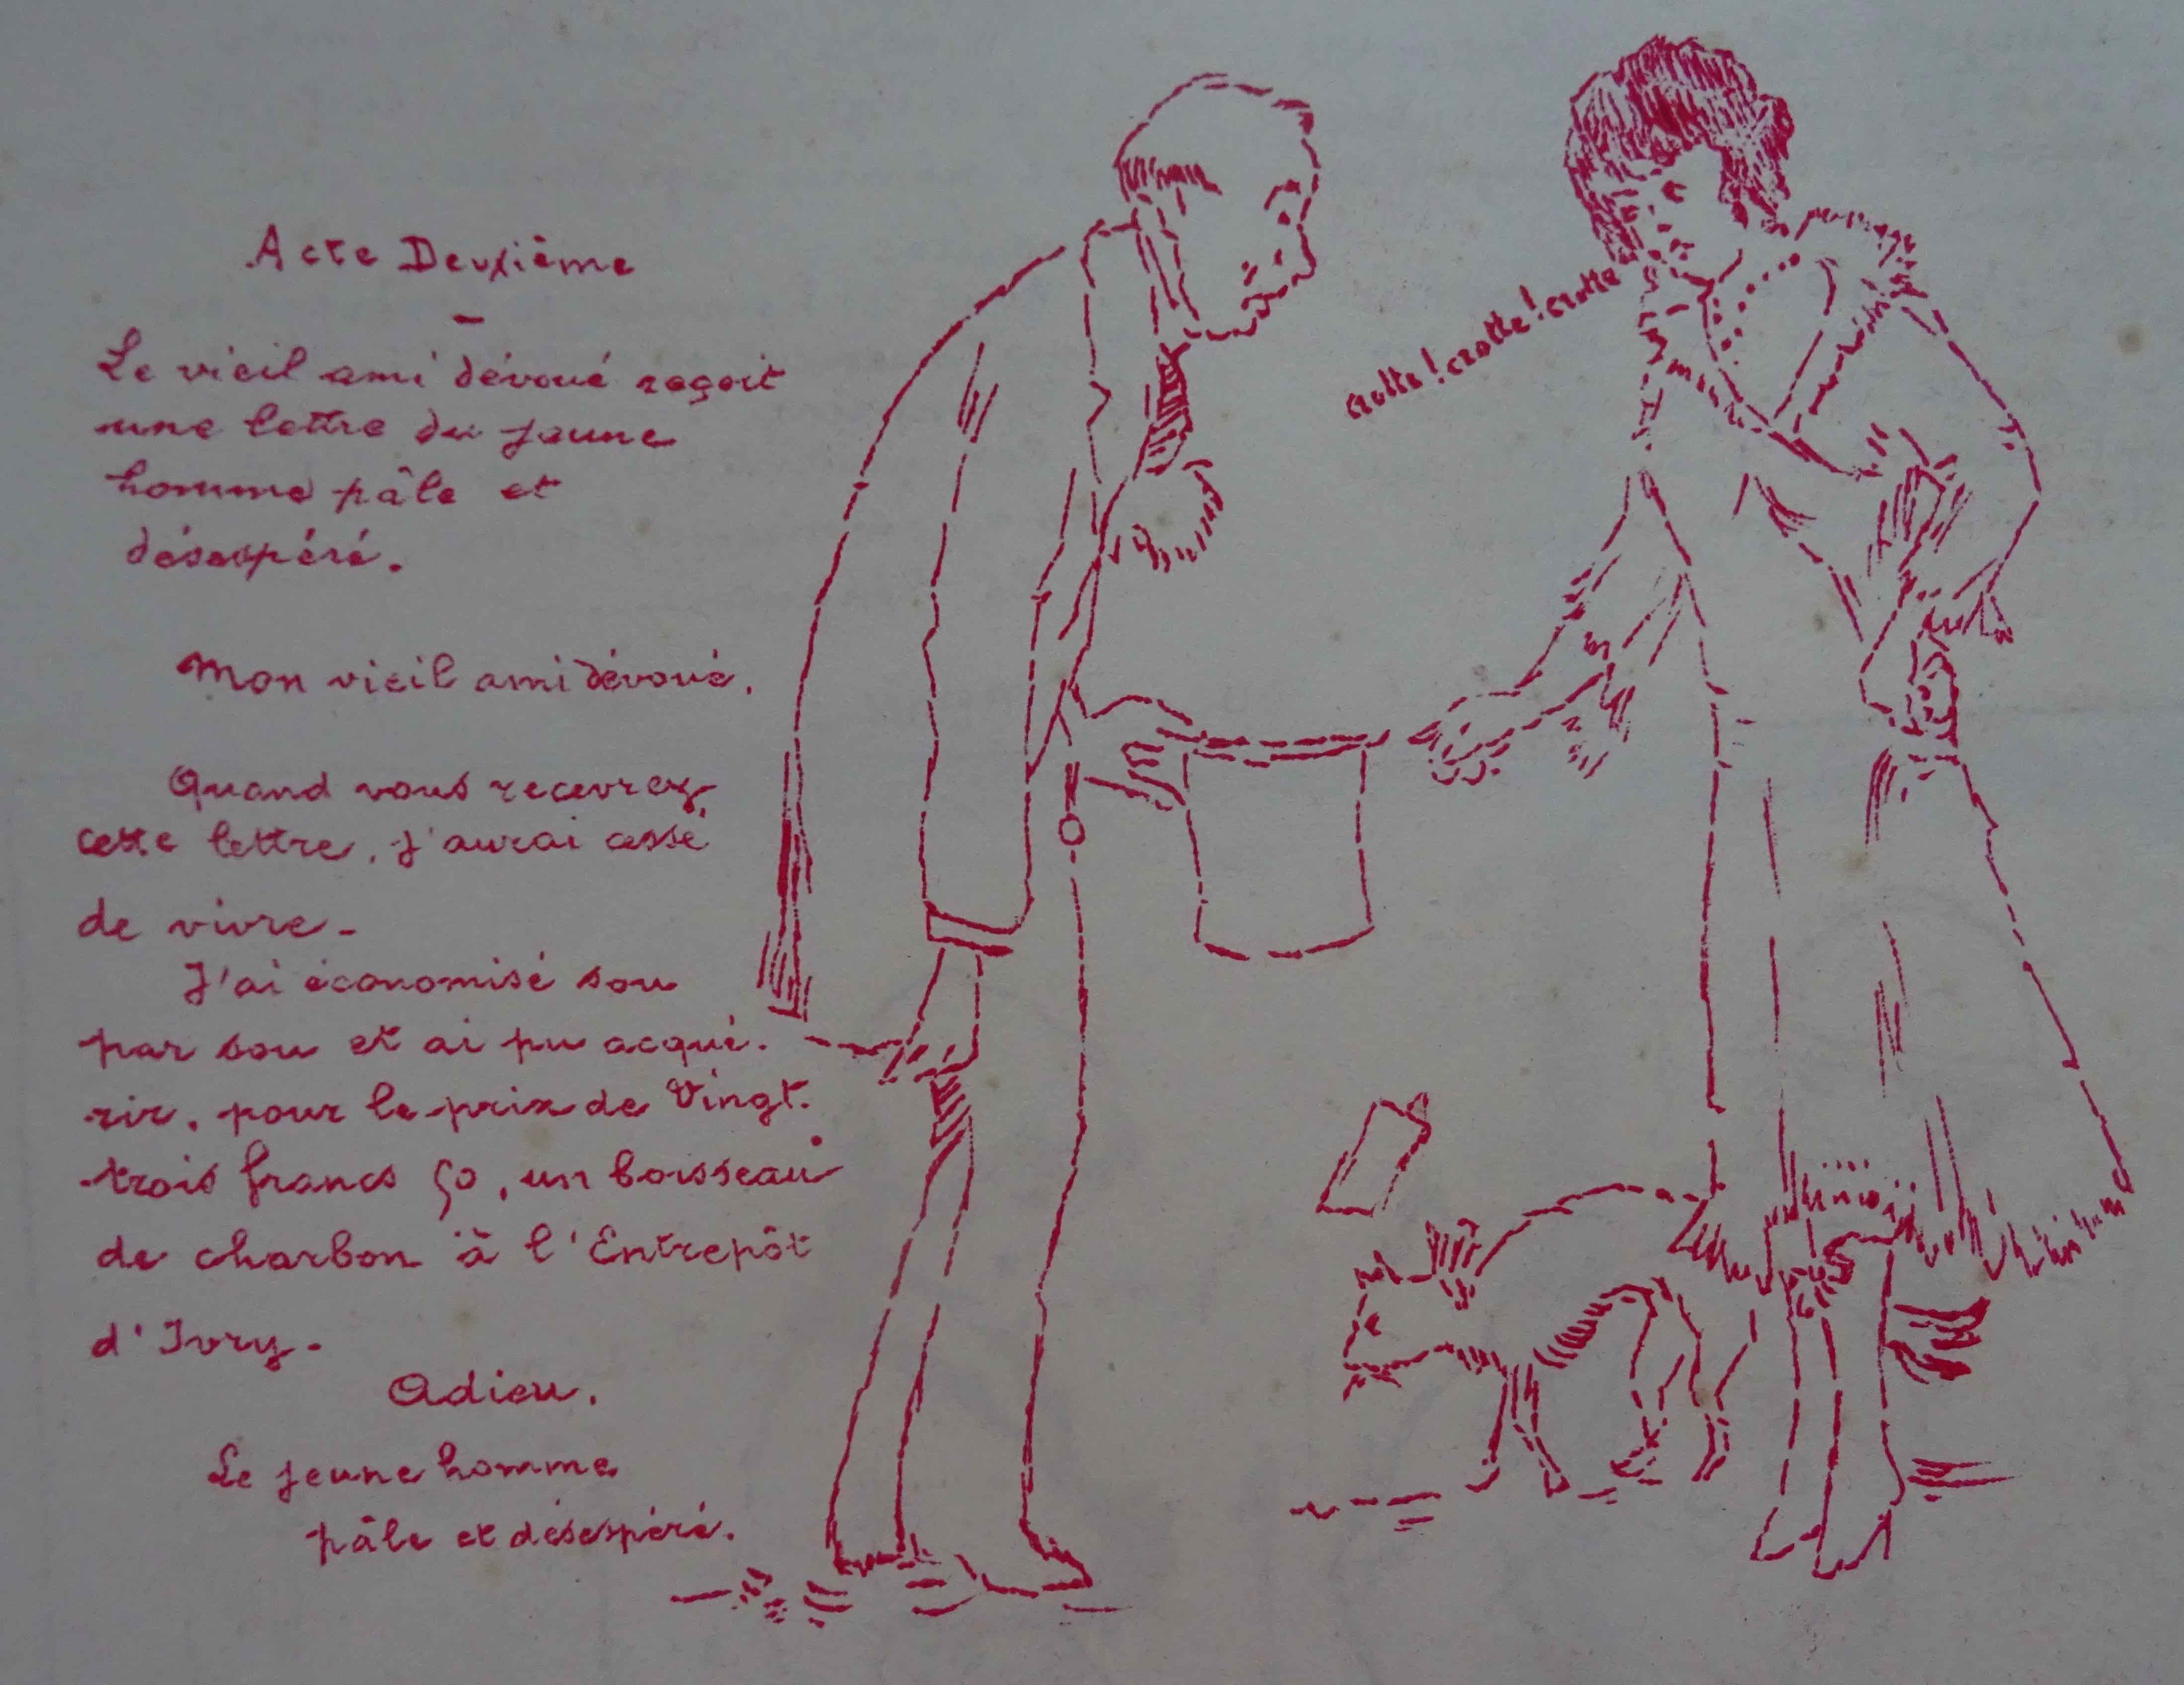 Acte Deuxième
Le vieil ami dévoué reçoit
une lettre du jeune
homme pâle et
désespéré.
Mon vieil ami dévoué,
Quand vous recevrez
cette lettre, j'aurai cessé
de vivre -
J'ai économisé sou
par sou et ai pu acqué-
rir, pour le prix de Vingt-
trois francs 50, un boisseau
de charbon à l'Entrepôt
d'Ivry -
Adieu.
Le jeune homme
pâle et désespéré.
crotte! crotte! crotte